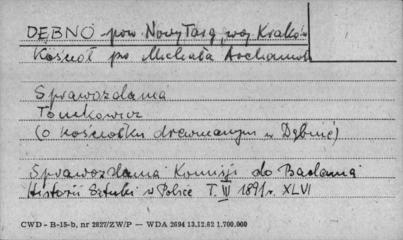 DĘBNO pow. Nowy Targ, woj. Kraków
Kościół pw Michała Archanioła
Sprawozdania
Tomkowicz
(o kościółku drewnianym w Dębnie)
Sprawozdania Komisji do Badania
Historii Sztuki w Polsce T. IV 1891 r. XLVI
CWD - B-15-b, nr 2827/ZW/P — WDA 2694 13.12.62 1.700.000